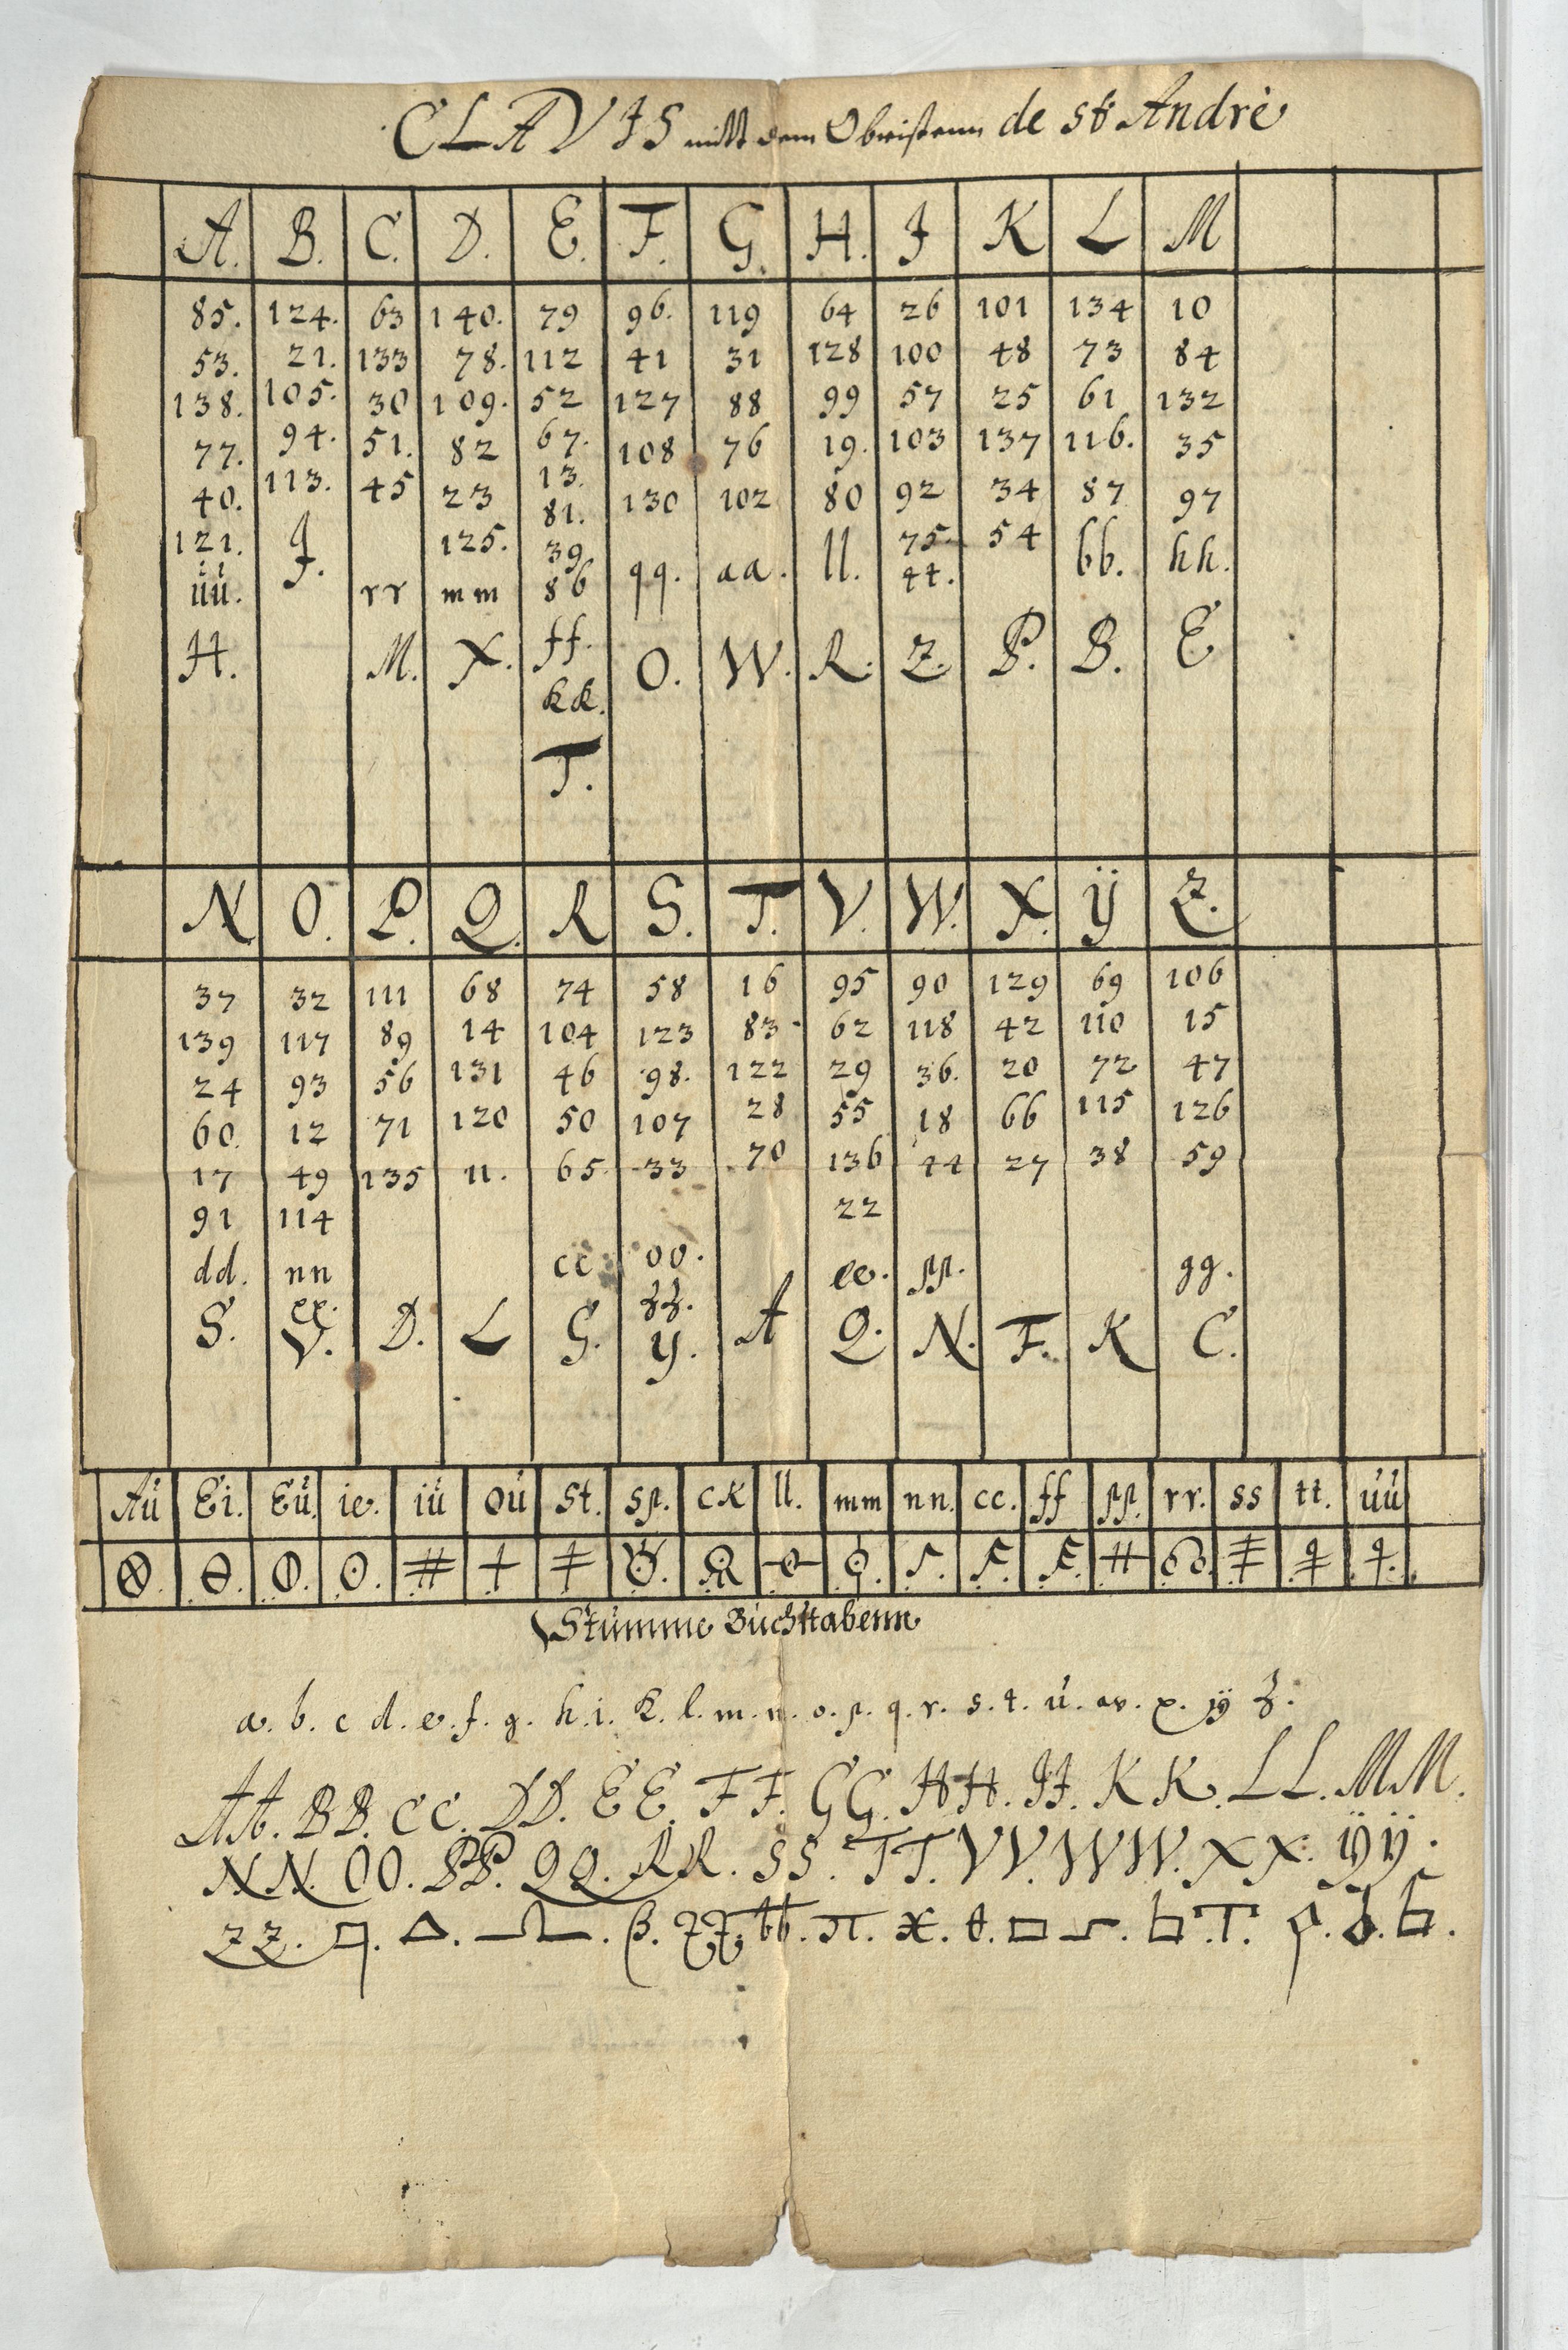 CLAVIS mitt dem Obristenn de St Andrè
A. B. C. D. E. F. G. H. J K L M
85. 124. 63 140. 79 96. 119 64 26 101 134 10
53. 21. 133 78. 112 41 31 128 100 48 73 84
138. 105. 30 109. 52 127 88 99 57 25 61 132
77. 94. 51. 82 67. 108 76 19. 103 137 116. 35
40. 113. 45 23 13. 130 102 80 92 34 87 97
121. J. 125. 81. 75. 54
üü. rr mm 39 qq. aa. ll. tt. bb. hh.
86
H. M. X. ff. O. W. R. Z. P. B. E
kk.
T.
N O. P. Q. R S. T. V. W. X. ÿ Z.
37 32 111 68 74 58 16 95 90 129 69 106
139 117 89 14 104 123 83 62 118 42 110 15
24 93 56 131 46 98. 122 29 36. 20 72 47
60. 12 71 120 50 107 28 55 18 66 115 126
17 49 135 11. 65 33 70 136 44 27 38 59
91 114 22
dd. nn cc oo. ee. pp. gg.
xx. zz.
S. V. D. L G. Y. A Q. N. F. K C.
Aú Ei. Eú ie. iú oú st. sp. ck ll. mm nn. cc. ff pp. rr. ss tt. úú
Stumme Buchstabenn
a. b. c d. e. f. g. h. i. k. l. m. n. o. p. q. r. s. t. ú. w. x. ÿ z.
AA. BB. CC. DD. EE. FF. GG. HH. JJ. KK. LL. MM.
NN. OO. PP. QQ. RR. SS. TT. VV. WW. XX. ÿÿ.
ZZ.